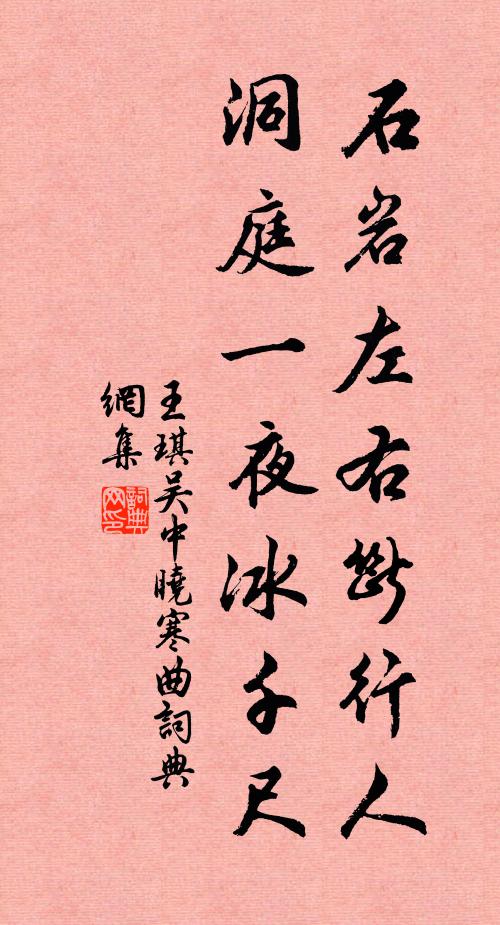 石岩左右斷行人
洞庭一夜冰千尺
王琪吴中曉寒曲詞典
網集
詞典
网印